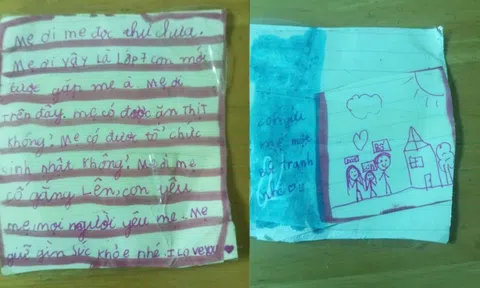 Mẹ ơi mẹ đọc thư chưa.
Mẹ ơi vậy là lớp 7 con mới
được gặp mẹ à. Mẹ ơi
trên đấy, mẹ có được ăn thịt
không? Mẹ có được tổ chức
sinh nhật không? Mẹ ơi mẹ
cố gắng lên, con yêu
mẹ, mọi người yêu mẹ. Mẹ
giữ gìn sức khỏe nhé. I love you
con gửi
mẹ một
bức tranh
nhé